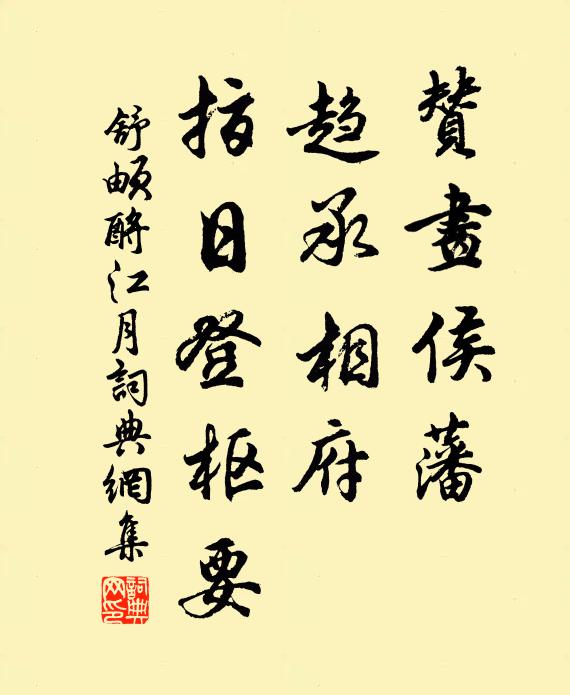 贊畫侯藩
趨承相府
指日登枢要
舒頔酹江月詞典網集
詞典網印